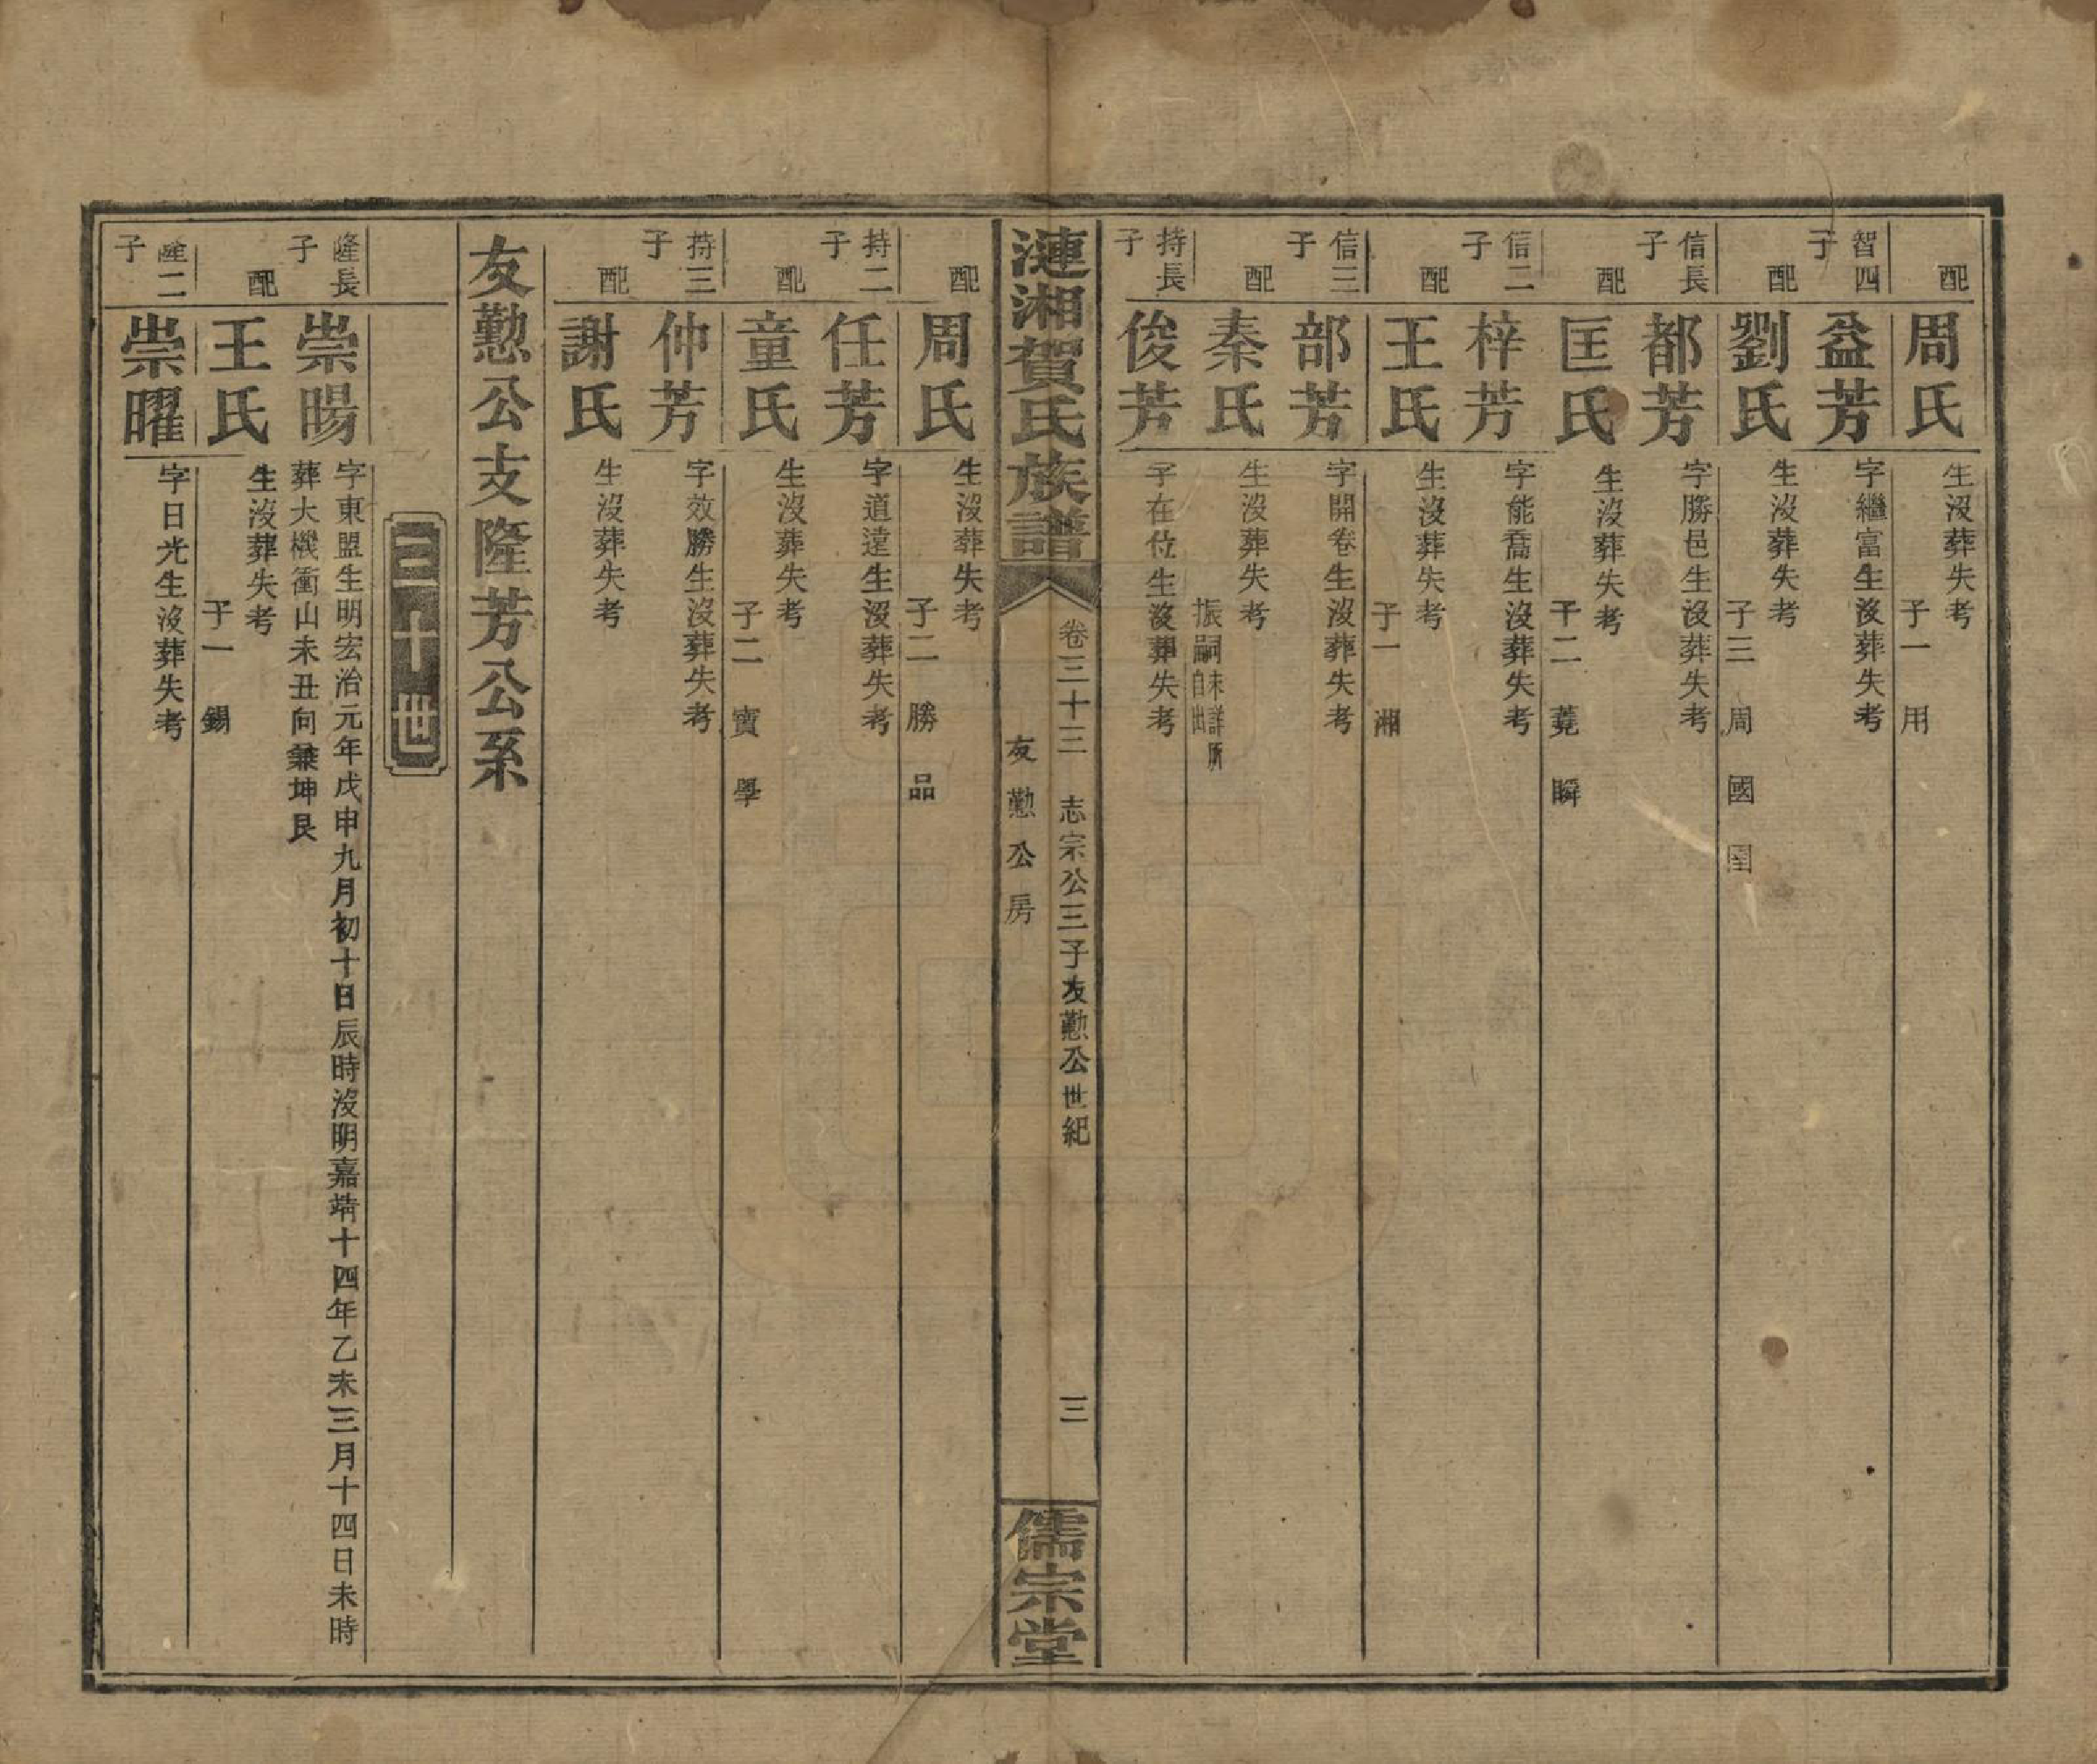 配 周氏 生沒葬失考
子一 用
智四子 益芳 字繼富生沒葬失考
配 劉氏 生沒葬失考
子三 周 國
信長子 都芳 字勝邑生沒葬失考
配 匡氏 生沒葬失考
子二 蕘 瞬
信二子 梓芳 字能喬生沒葬失考
配 王氏 生沒葬失考
子一 湘
信三子 部芳 字開卷生沒葬失考
配 秦氏 生沒葬失考
振嗣未詳所自出
持長子 俊芳 字在位生沒葬失考
漣湘賀氏族譜 卷三十三 志宗公三子友勤公世紀 三 儒宗堂
友勤公房
配 周氏 生沒葬失考
子二 勝 品
持二子 任芳 字道達生沒葬失考
配 童氏 生沒葬失考
子二 寶 學
持三子 仲芳 字效勝生沒葬失考
配 謝氏 生沒葬失考
友勤公支隆芳公系
三十世
隆長子 崇暘 字東盟生明宏治元年戊申九月初十日辰時沒明嘉靖十四年乙未三月十四日未時
葬大機衝山未丑向兼坤艮
配 王氏 生沒葬失考
子一 錫
隆二子 崇曜 字日光生沒葬失考